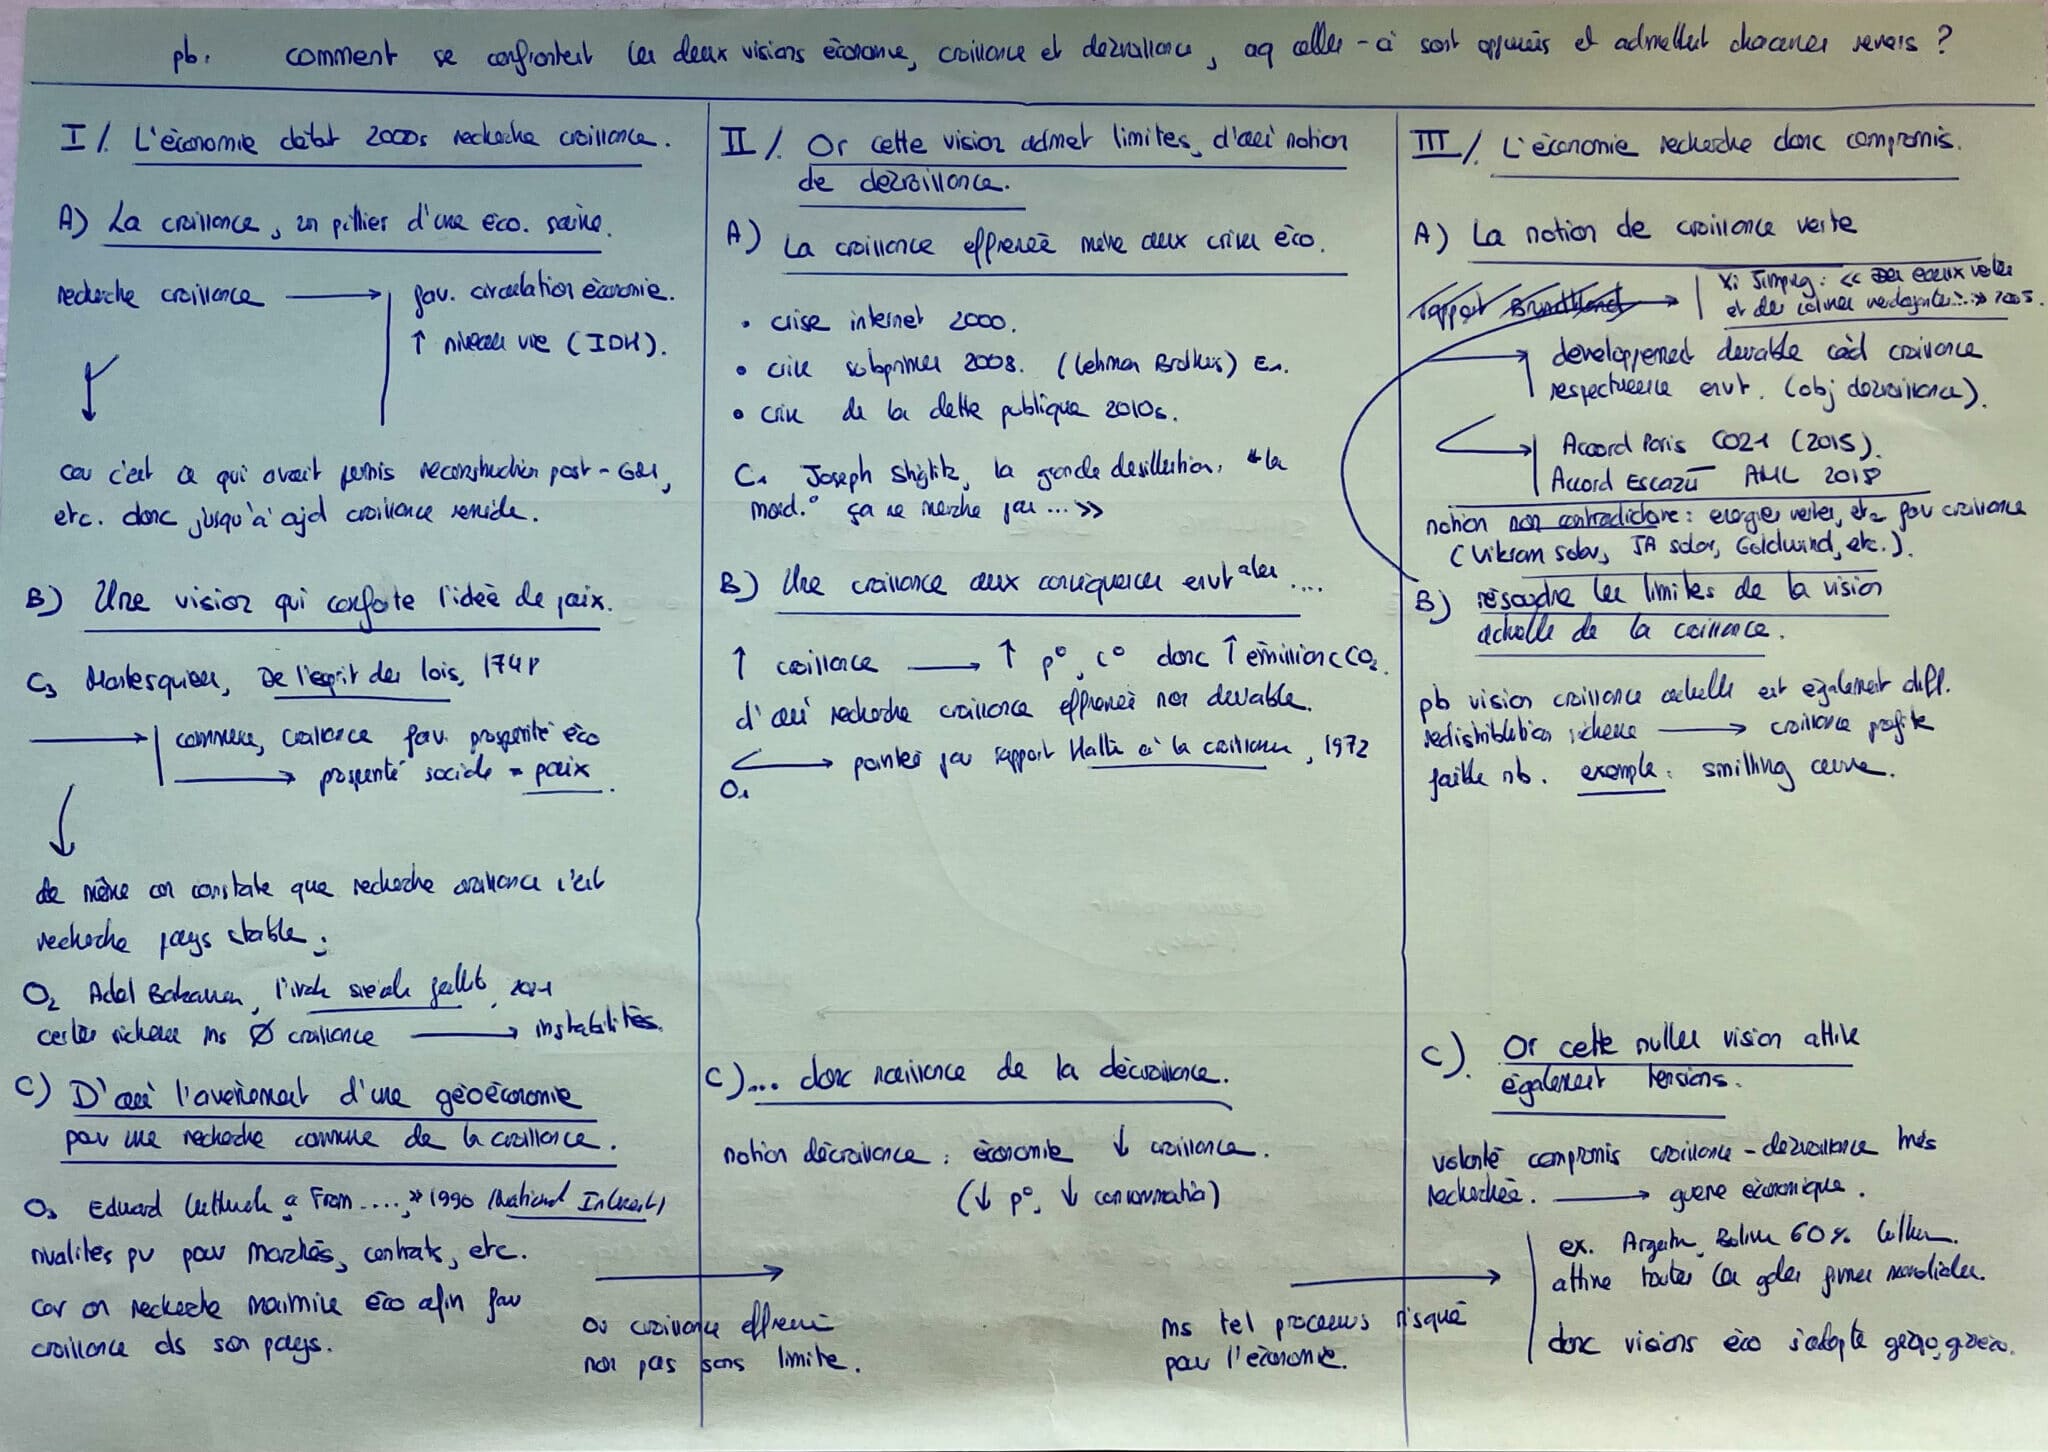 pb. comment se confrontent les deux visions économie, croissance et décroissance, aq celles-ci sont opposées et admettent chacunes revers ?
I/. L'économie début 2000s recherche croissance.
A) La croissance, un pillier d'une éco. saine.
recherche croissance → fav. circulation économie.
↑ niveau vie (IDH).
car c'est ce qui avait permis reconstruction post-GM,
etc. donc jusqu'à ajd croissance
B) Une vision qui conforte l'idée de paix.
C3 Montesquieu, De l'esprit des lois, 1748
→ commerce, croissance fav. prospérité éco
→ prospérité sociale = paix.
de même on constate que recherche croissance c'est
recherche pays stable.
O2 Adel Bakawan, l'Irak 2021
certes richesse ms Ø croissance → instabilités.
C) D'où l'avènement d'une géoéconomie
par une recherche commune de la croissance.
O3 Edward Luttwak « From .... » 1990 (National Interest)
rivalités pu pour marchés, contrats, etc.
car on recherche maximise éco afin fav
croissance ds son pays.
→ Or croissance effrenée
non pas sans limite.
II/. Or cette vision admet limites, d'où notion
de décroissance.
A) La croissance effrenée mène aux crises éco.
• crise internet 2000.
• crise subprimes 2008. (Lehman Brothers) E1.
• crise de la dette publique 2010s.
C1 Joseph Stiglitz, la grande désillusion, « la
mond.° ça ne marche pas ... »
B) Une croissance aux conséquences envtales ....
↑ croissance → ↑ p°, c° donc ↑ émissions CO2.
d'où recherche croissance effrenée non durable.
→ pointée par rapport Halte à la croissance, 1972
O1
C) ... donc naissance de la décroissance.
notion décroissance : économie ↓ croissance.
(↓ p°, ↓ consommation)
→ ms tel processus risqué
pour l'économie.
III/. L'économie recherche donc compromis.
A) La notion de croissance verte
rapport Brundtland → Xi Jinping : « eaux vertes
et des colines verdoyantes... » 2005.
→ développement durable càd croissance
respectueuse envt. (obj décroissance).
→ Accord Paris CO21 (2015).
Accord Escazú AML 2018
notion non contradictoire : énergies vertes, etc fav croissance
(Vikram solar, JA solar, Goldwind, etc.).
B) résoudre les limites de la vision
actuelle de la croissance.
pb vision croissance actuelle est également diff.
redistribution richesse → croissance profite
faible nb. exemple : smilling curve.
C). Or cette nvlles vision attire
également tensions.
volonté compromis croissance - décroissance très
recherchée. → guerre économique.
ex. Argentin, Bolivie 60% lithium.
attire toutes les gdes firmes mondiales.
donc visions éco s'adapte